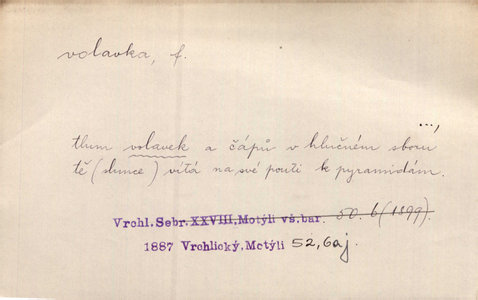 volavka, f.
...,
tlum volavek a čápů v hlučném sboru
tě (slunce) vítá na své pouti k pyramidám.
Vrchl. Sebr. XXVIII, Motýli vš. bar. 50. 6 (1899).
1887 Vrchlický, Motýli 52, 6aj.